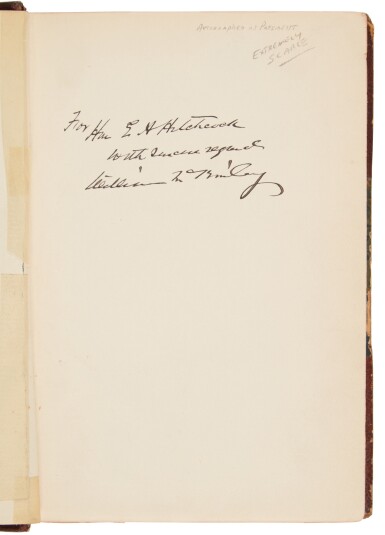 Autographed as President
EXTREMELY
SCARCE
For Hon E A Hitchcock
with sincere regards
William McKinley